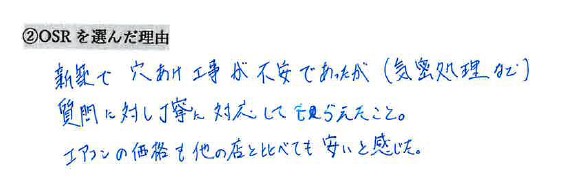 ②OSRを選んだ理由
新築で穴あけ工事が不安であったが(気密処理など)
質問に対し丁寧に対応して もらえたこと。
エアコンの価格も他の店と比べても安いと感じた。